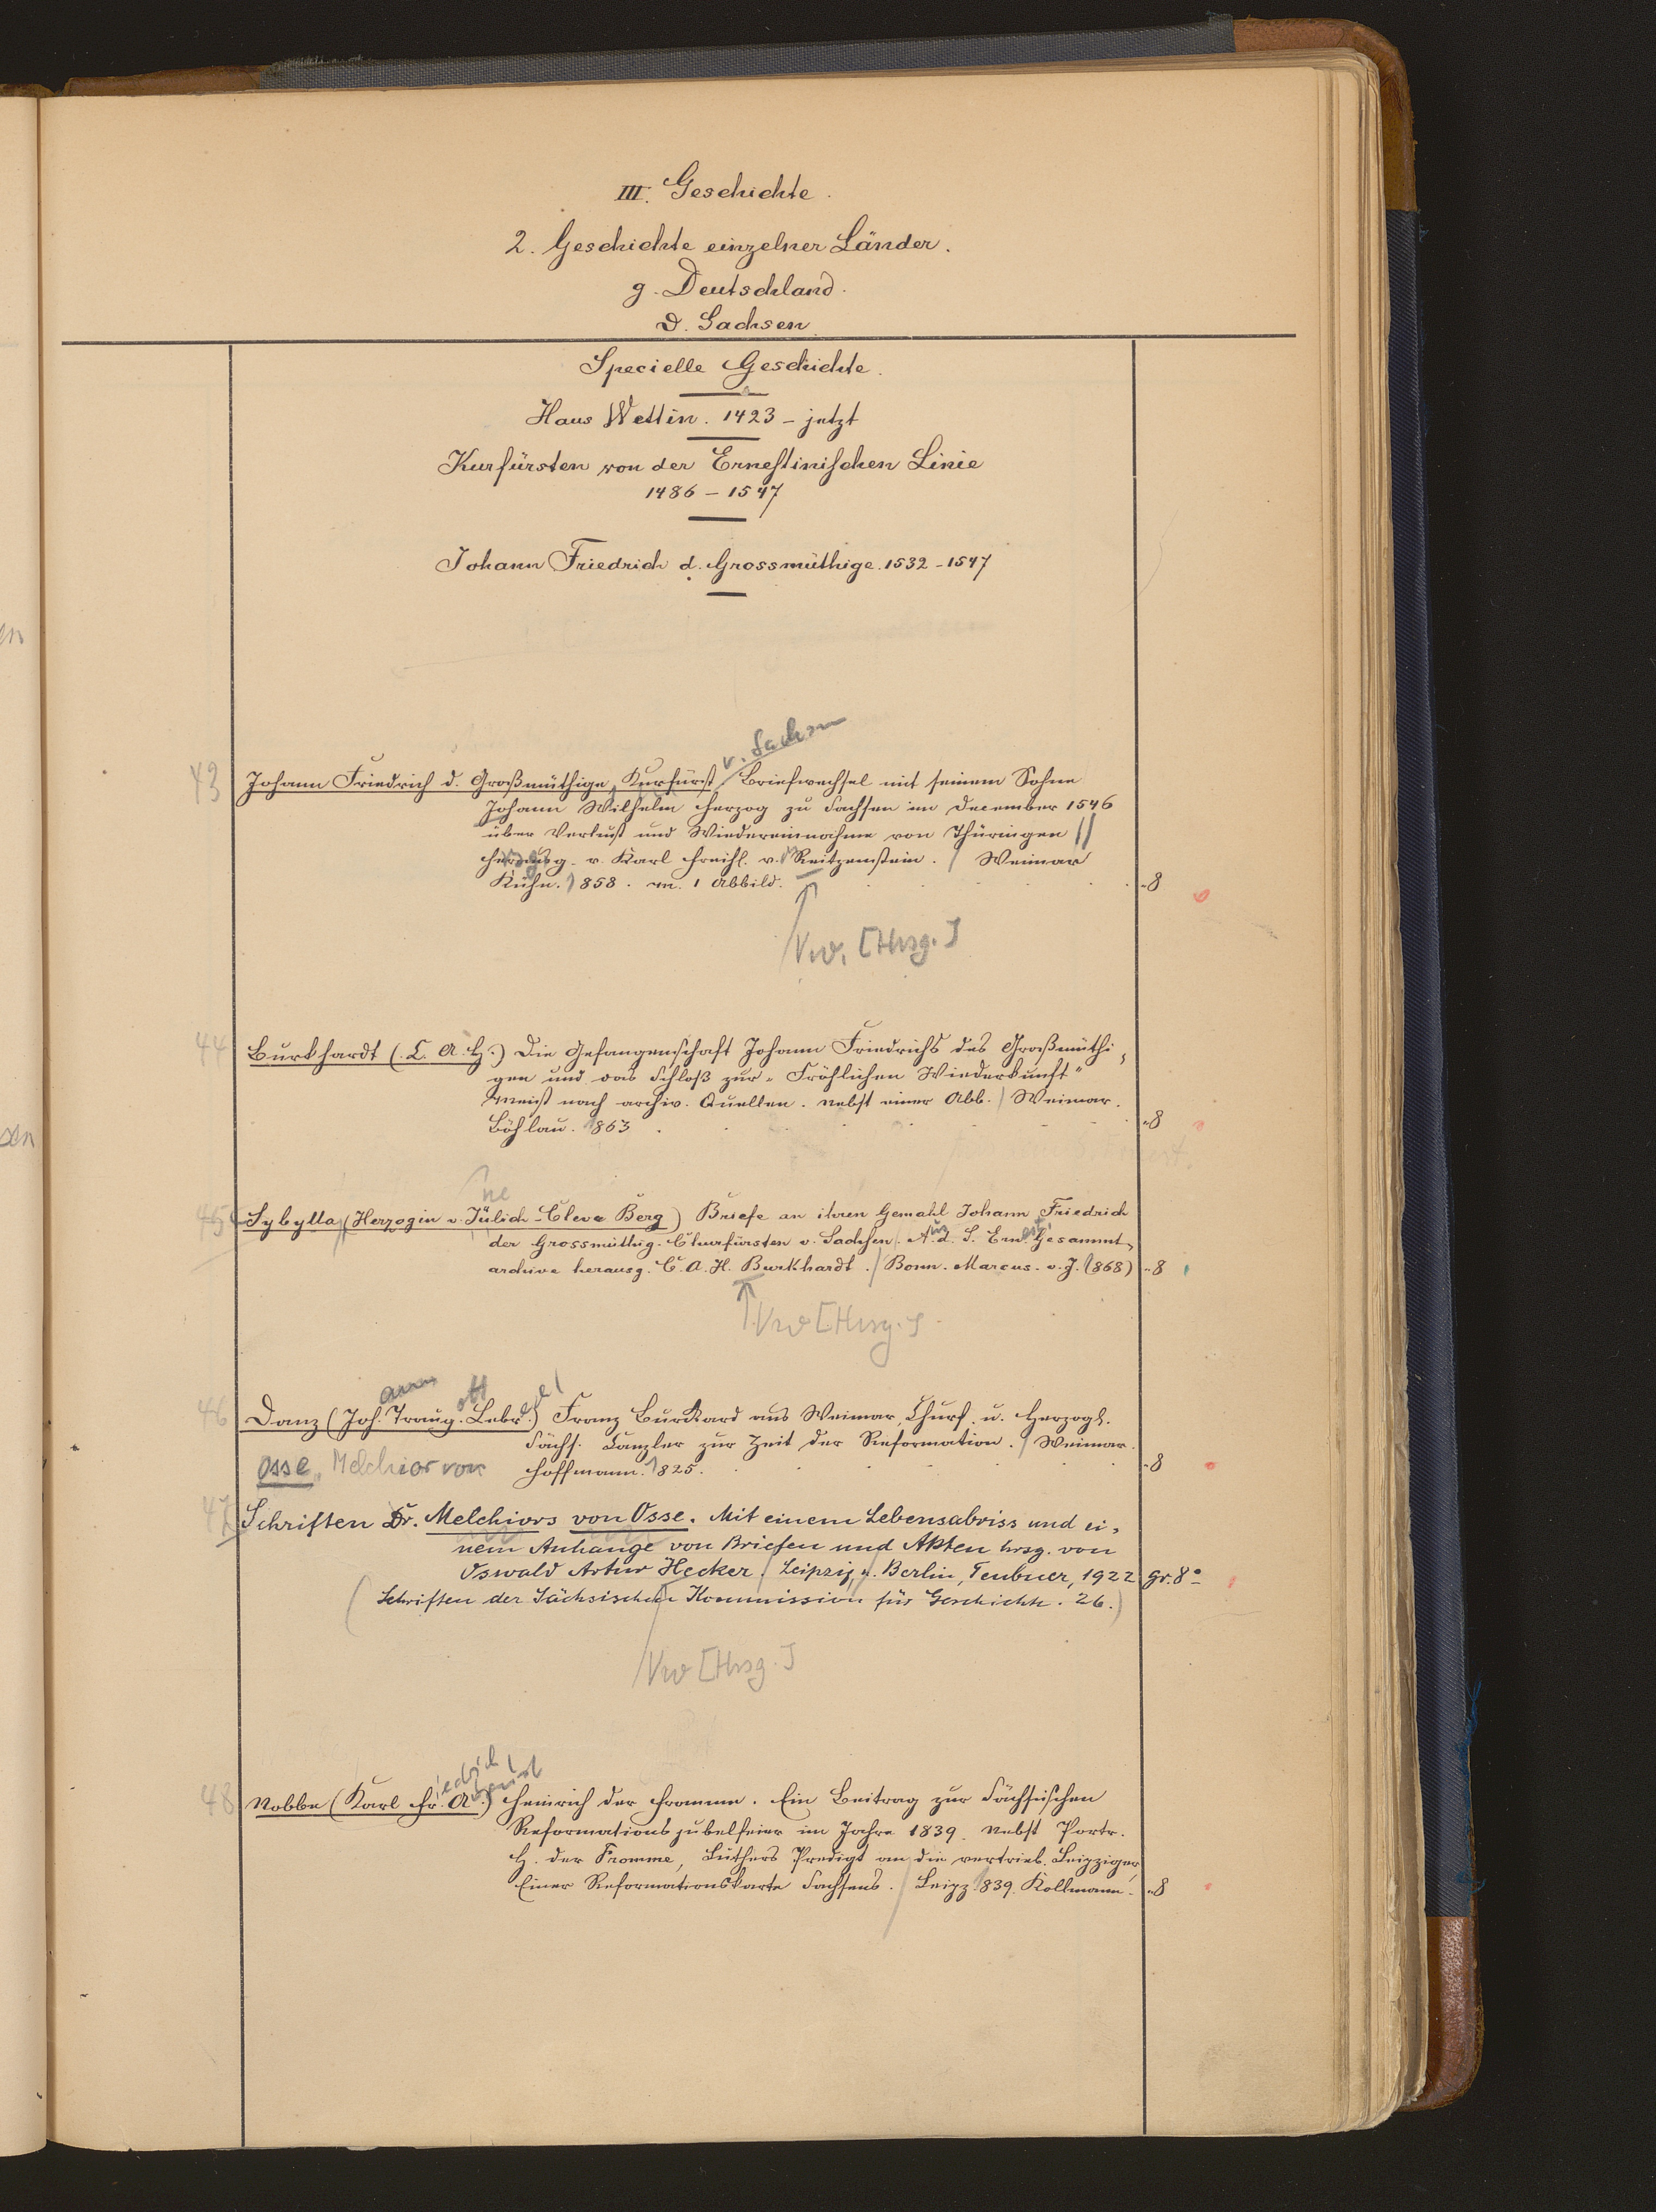 III. Geschichte.
2. Geschichte einzelner Länder.
g. Deutschland.
d. Sachsen.
Specielle Geschichte.
Haus Wettin. 1423 – jetzt
Kurfürsten von der Ernestinischen Linie
1486 – 1547
Johann Friedrich d. Grossmüthige. 1532 – 1547
v. Sachsen
43 Johann Friedrich d. Großmüthige, Kurfürst, Briefwechsel mit seinem Sohne
Johann Wilhelm Herzog zu Sachsen im December 1546
über Verlust und Wiedereinnahme von Thüringen //
herausg. v. Karl Freih. v. Reitzenstein. / Weimar
Kühn. 1858. m. 1 Abbild. 8
Vw. [Hrsg.]
44 Burkhardt (C. A. H.) Die Gefangenschaft Johann Friedrichs des Großmüthi-
gen und das Schloß zur „Fröhlichen Wiederkunft"
Meist nach archiv. Quellen. Nebst einer Abb. / Weimar.
Böhlau. 1863. 8
ne
45 Sybylla (Herzogin v. Jülich-Cleve Berg) Briefe an ihren Gemahl Johann Friedrich
der Grossmüthig. Churfürsten v. Sachsen. A. d. S. Ern. Gesammt-
archive herausg. C. A. H. Burkhardt. / Bonn. Marcus. o. J. (1868) 8
Vw [Hrsg.]
ann ott el
46 Danz (Joh. Traug. Lebr.) Franz Burckard aus Weimar, Churf. u. Herzogl.
Sächs. Canzler zur Zeit der Reformation. / Weimar.
Hoffmann. 1825. 8
Osse, Melchior von
47 Schriften Dr. Melchiors von Osse. Mit einem Lebensabriss und ei-
nem Anhange von Briefen und Akten hrsg. von
Oswald Artur Hecker. / Leipzig u. Berlin, Teubner, 1922 gr. 8°
(Schriften der Sächsischen Kommission für Geschichte. 26.)
Vw [Hrsg.]
iedrich
48 Nobbe (Karl Fr. A.) Heinrich der Fromme. Ein Beitrag zur Sächsischen
Reformationsjubelfeier im Jahre 1839. Nebst Portr.
H. der Fromme, Luthers Predigt an die vertrieb. Leipziger,
Einer Reformationskarte Sachsens. / Leipz. 1839. Kollmann. 8